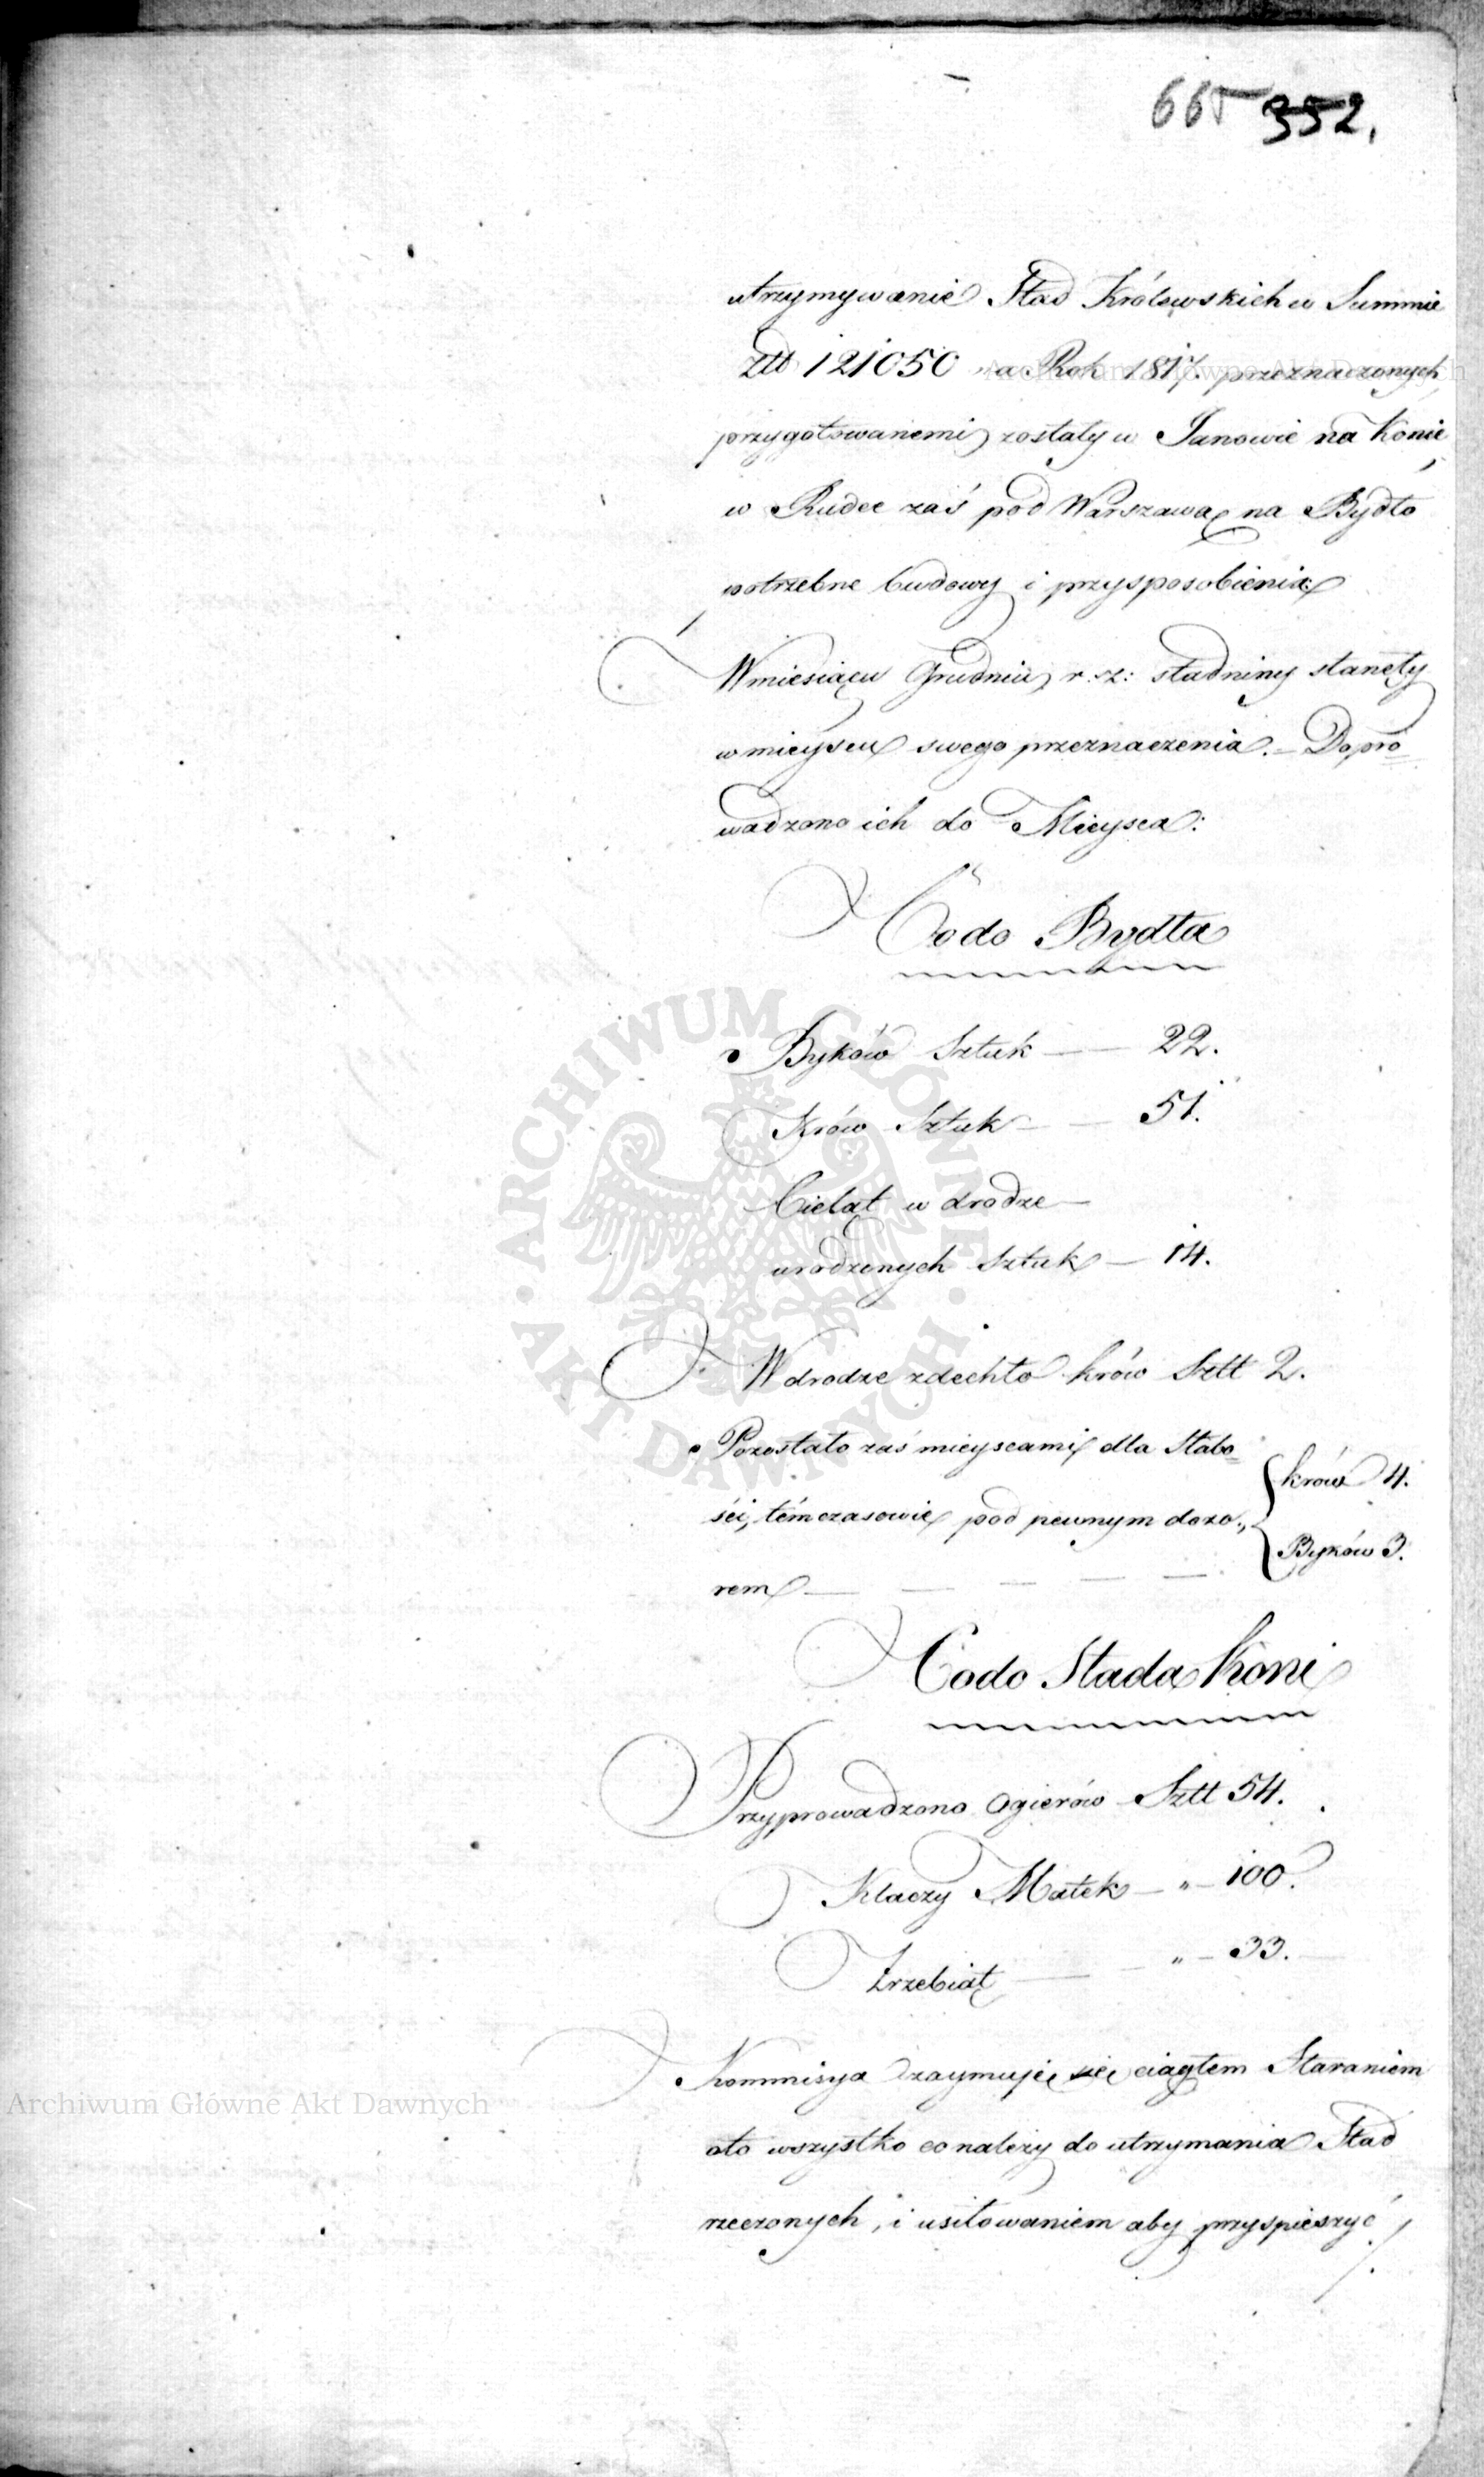 665 352.
utrzymywanie Stad Królewskich w Summie
ztt 121050 na Rok 1817. przeznaczonych,
przygotowanemi zostały w Janowie na konie,
w Rudee zaś pod Warszawą na Bydło
potrzebne budowy i przysposobienia
W miesiącu Grudniu r. z: stadniny stanęły
w mieyscu swego przeznaczenia. – Dopro=
wadzono ich do Mieysca:
Co do Bydła
Byków Sztuk — 22.
Krów Sztuk — 51.
Cieląt w drodze —
urodzonych Sztuk — 14.
W drodze zdechło krów Sztt 2.
Pozostało zaś mieyscami dla Słabo=
ści, témczasowie pod pewnym dozo„ { krów 4.
Byków 3.
rem — — — — —
Co do Stada Koni
Przyprowadzono Ogierów Sztt 54.
Klaczy Matek — „ — 100.
Zrzebiąt — „ — 33.
Kommisya zaymuje się ciągłem Staraniem
oto wszystko co należy do utrzymania Stad
rzeczonych, i usiłowaniem aby przyspieszyć
Archiwum Główne Akt Dawnych
Archiwum Główne Akt Dawnych
ARCHIWUM GŁÓWNE AKT DAWNYCH